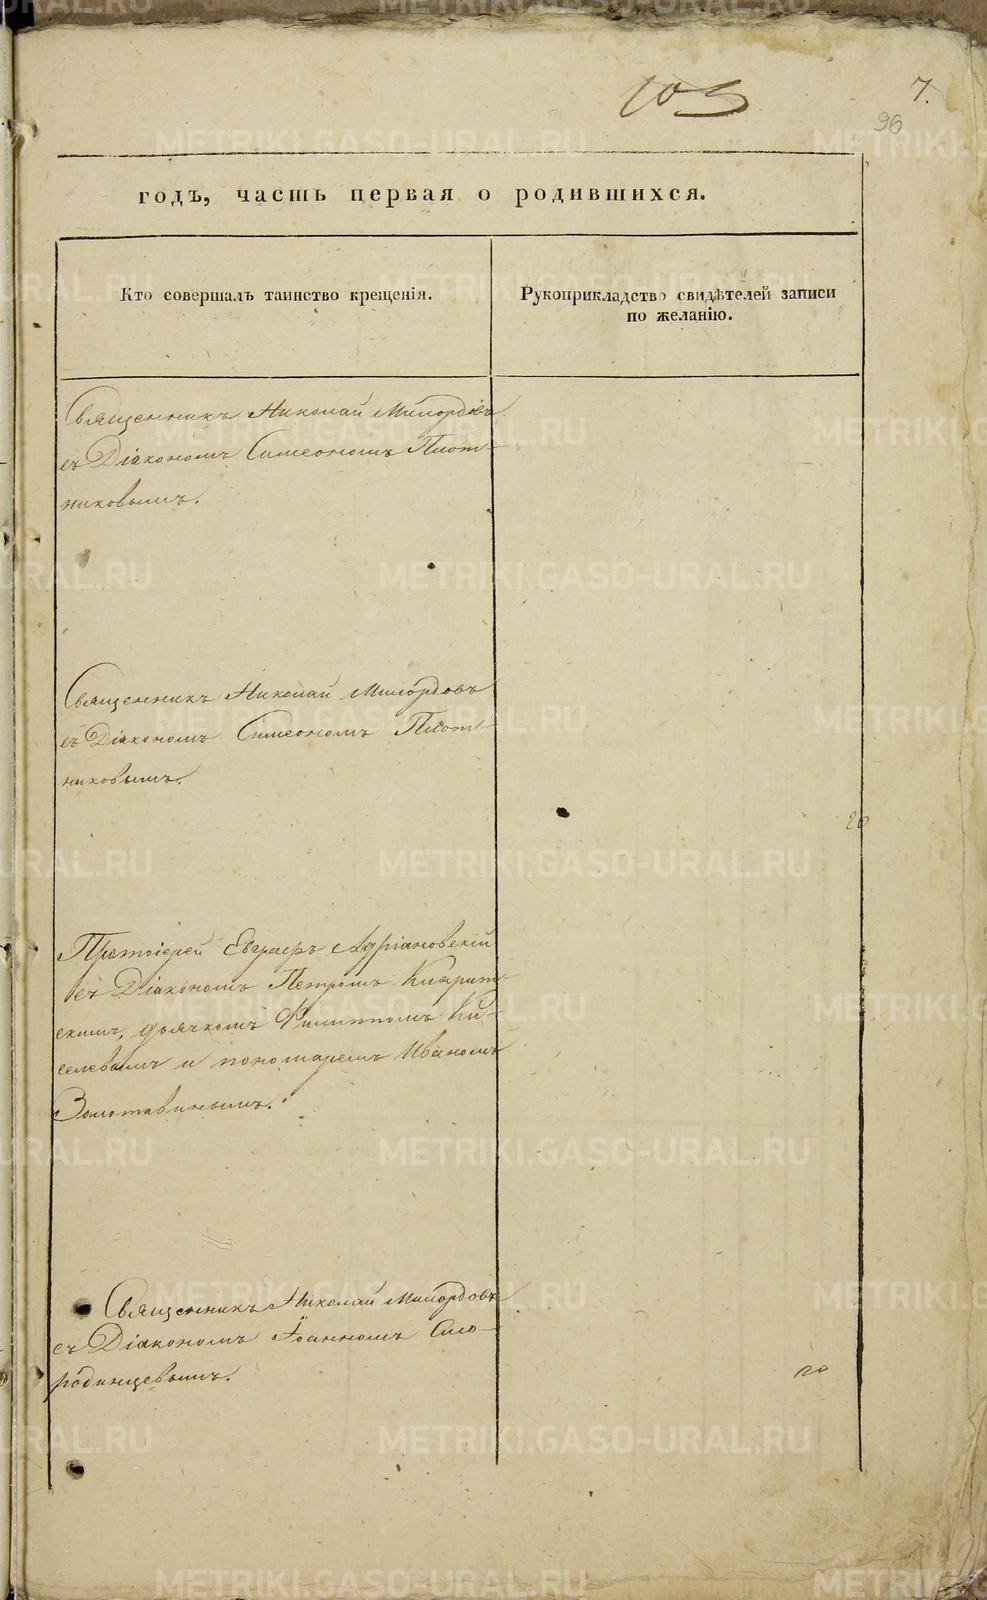 103
7.
96
годъ, часть первая о родившихся.
Кто совершалъ таинство крещенія.
Рукоприкладство свидѣтелей записи
по желанію.
Священникъ Николай Милордовъ
съ Діакономъ Симеономъ Плот-
никовымъ.
Священникъ Николай Милордовъ
съ Діакономъ Симеономъ Плот-
никовымъ.
20
Протоіерей Евграфъ Адріановскій
съ Діакономъ Петромъ
скимъ, дьячкомъ Филиппомъ Ки-
селевымъ и пономаремъ Иваномъ
Золотавинымъ.
Священникъ Николай Милордовъ
съ Діакономъ Іоанномъ Смо-
родинцевымъ.
20
METRIKI.GASO-URAL.RU